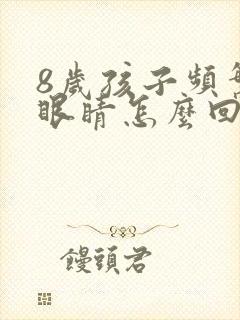 8歲孩子頻
眼睛怎麼回
饅頭君